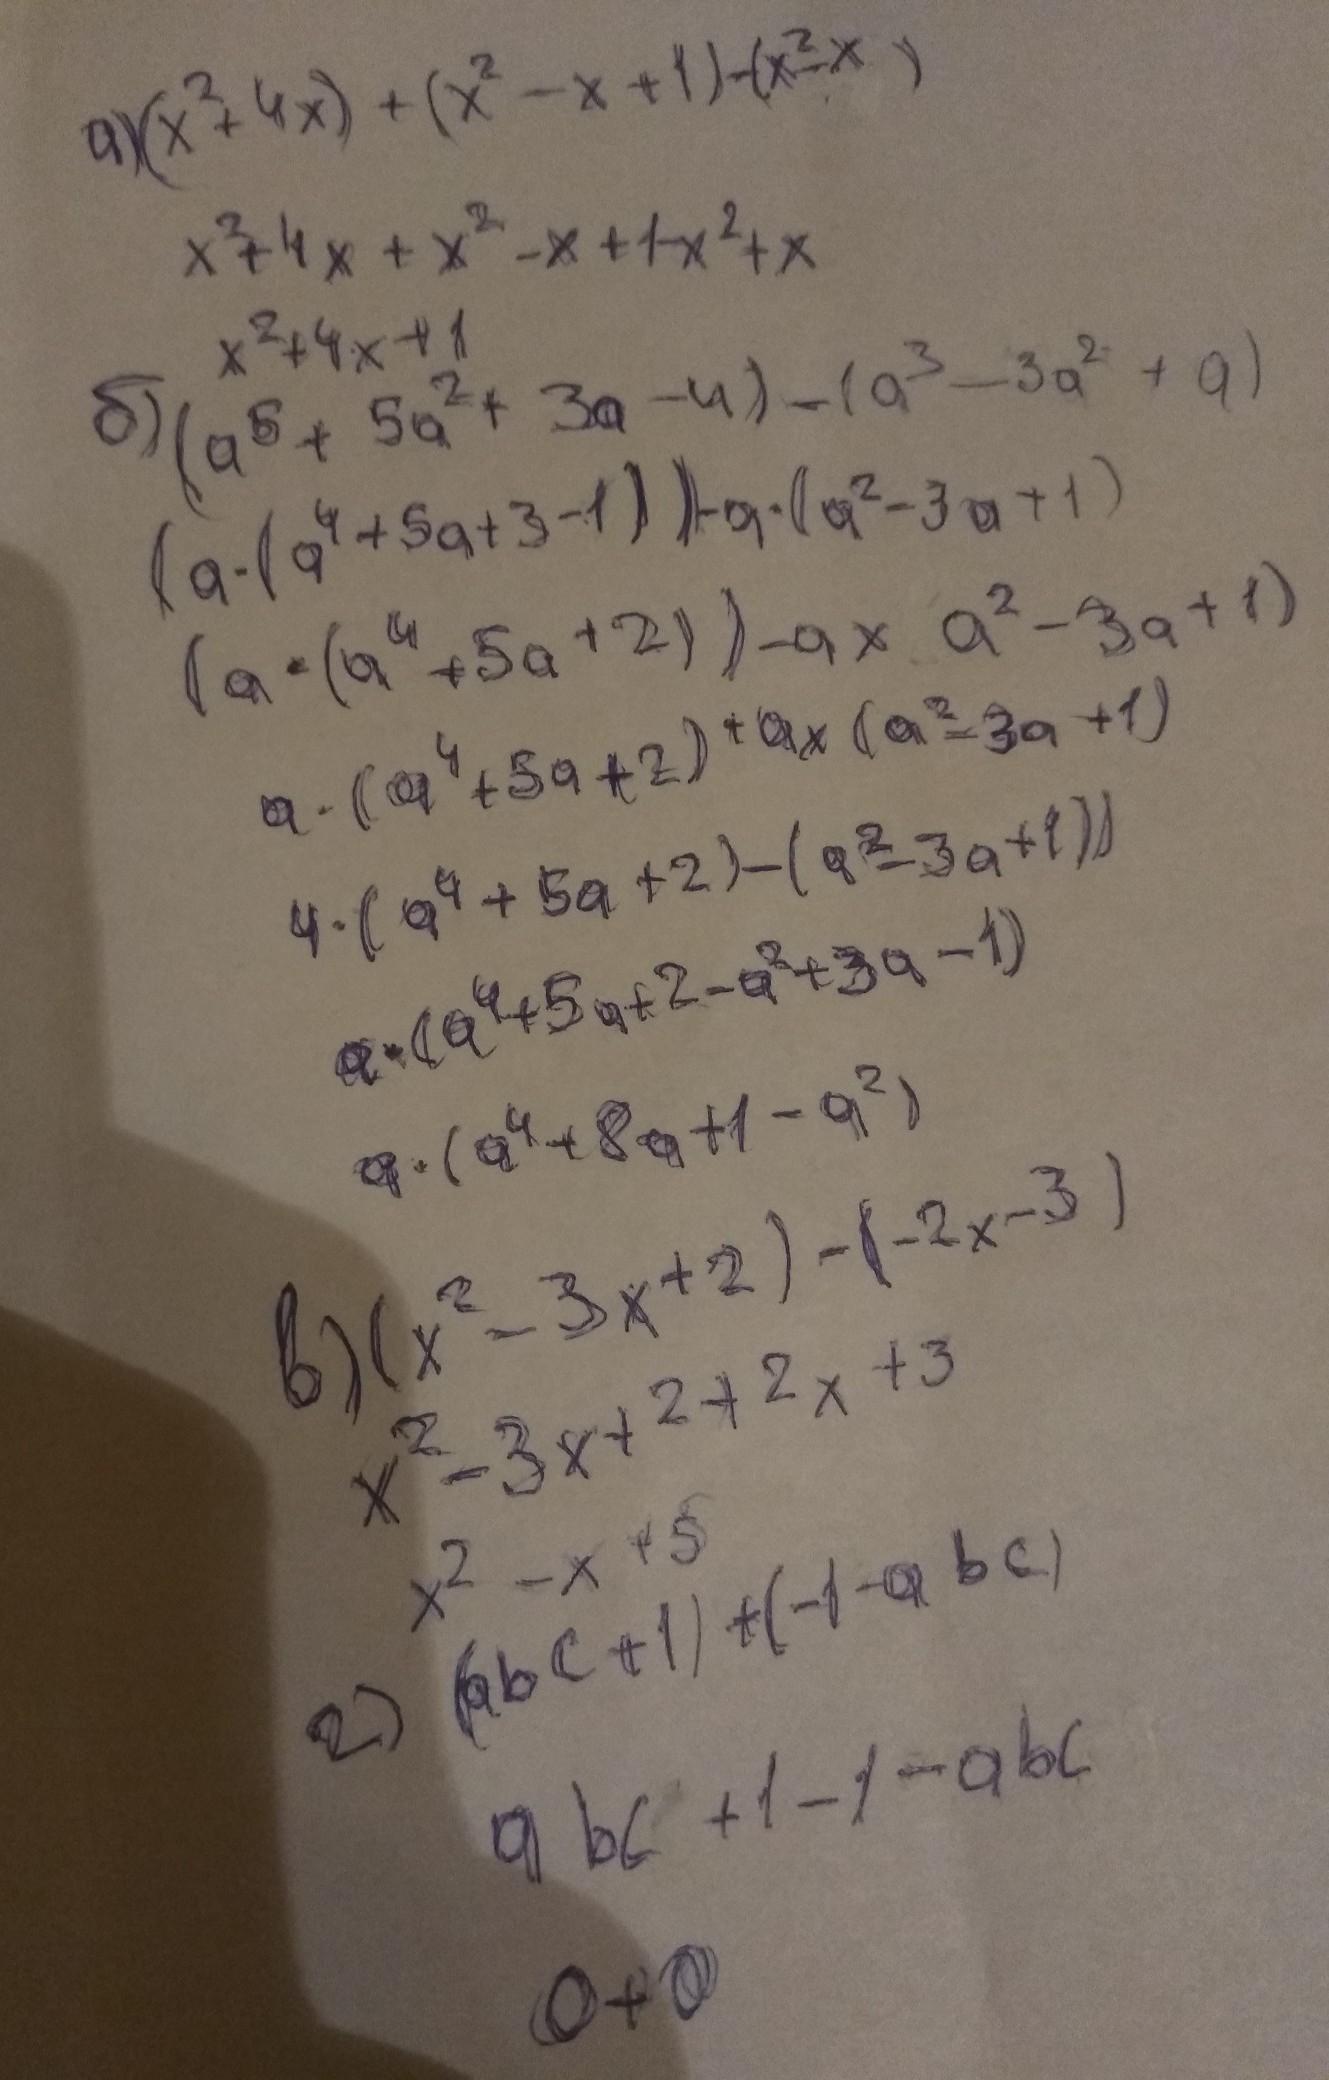 а) (x²+4x)+(x²-x+1)-(x²-x)
x²+4x+x²-x+1-x²+x
x²+4x+1
б) (a⁵+5a²+3a-4)-(a³-3a²+a)
(a·(a⁴+5a+3-1))-a·(a²-3a+1)
(a·(a⁴+5a+2))-a× a²-3a+1)
a·(a⁴+5a+2)+a×(a²-3a+1)
4·(a⁴+5a+2)-(a²-3a+1))
a·(a⁴+5a+2-a²+3a-1)
a·(a⁴+8a+1-a²)
в) (x²-3x+2)-(-2x-3)
x²-3x+2+2x+3
x²-x+5
г) (abc+1)+(-1-abc)
abc+1-1-abc
0+0